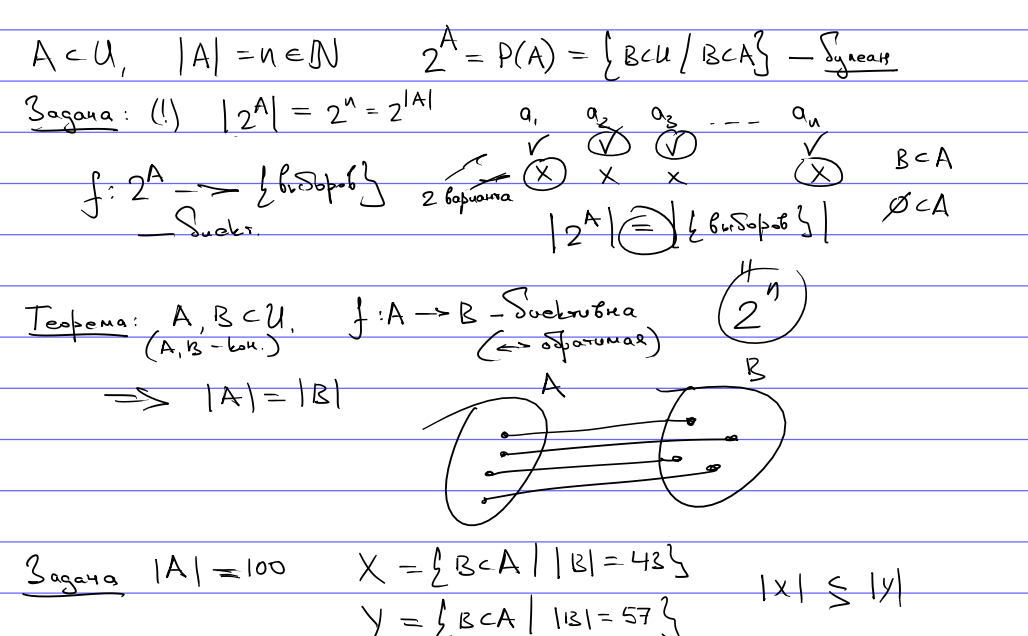 A ⊂ U, |A| = n ∈ ℕ 2^A = P(A) = {B⊂U / B⊂A} – булеан
Задача: (!) |2^A| = 2^n = 2^|A|
a₁ a₂ a₃ ---- aₙ
✓ ✓ ✓ ✓
f: 2^A → {выборов} 2 варианта x x x x B⊂A
— биект. |2^A| = |{выборов}| ∅⊂A
=
2^n
Теорема: A, B ⊂ U, f: A → B – биективна
(A, B – кон.) (↔ обратимая)
⇒ |A| = |B| A B
Задача |A| = 100 X = {B⊂A | |B| = 43}
Y = {B⊂A | |B| = 57} |X| ≶ |Y|